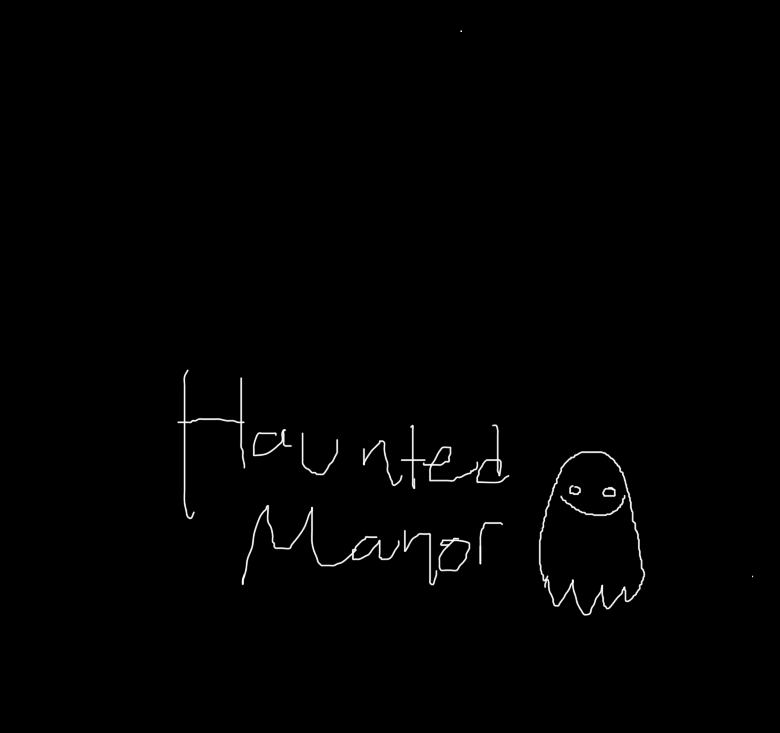 Haunted
Manor